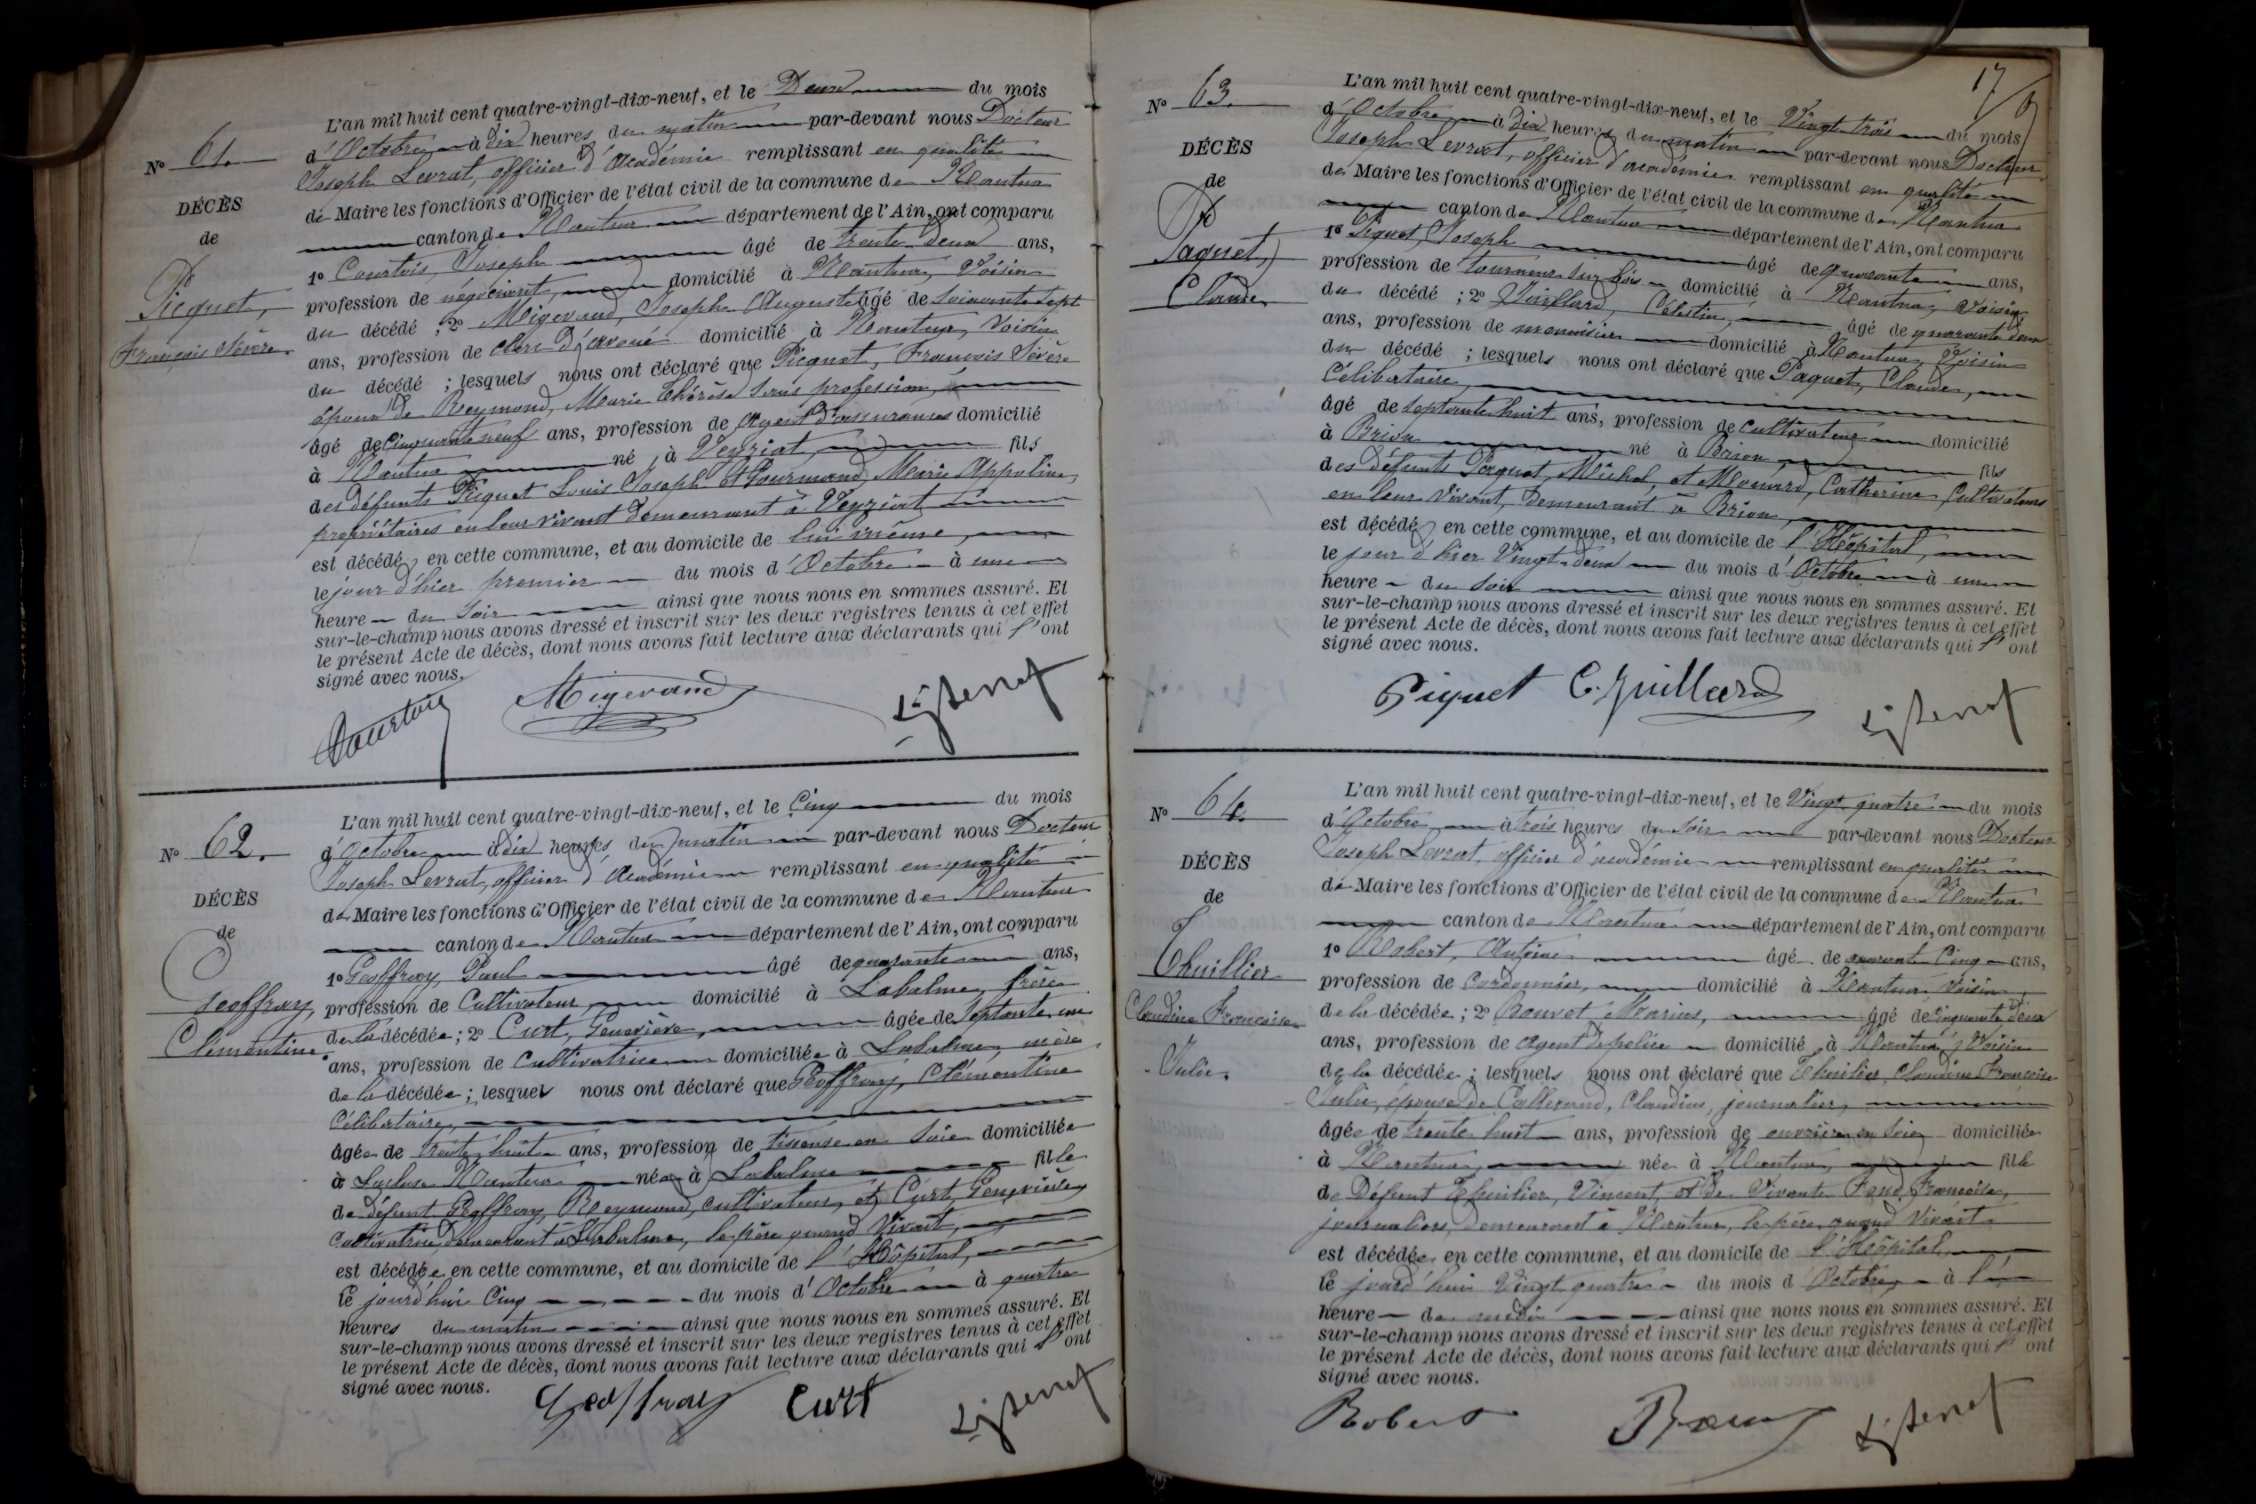 L'an mil huit cent quatre-vingt-dix-neuf, et le Deux du mois
d'Octobre à Dix heures du matin par-devant nous Docteur
Joseph Levrat, officier d'Académie remplissant en qualité
de Maire les fonctions d'Officier de l'état civil de la commune de Nantua
canton de Nantua département de l'Ain, ont comparu
1º Courtois, Joseph âgé de trente deux ans,
profession de négociant, domicilié à Nantua, Voisin
du décédé ; 2º Migerand, Joseph Auguste âgé de Soixante sept
ans, profession de clerc d'avoué domicilié à Nantua, Voisin
du décédé ; lesquels nous ont déclaré que Picquet, François Sévère
époux de Reymond, Marie Thérèse sans profession,
âgé de Cinquante neuf ans, profession de Agent d'assurances domicilié
à Nantua né à Veyziat, fils
des défunts Picquet Louis Joseph et Gourmand, Marie Appoline,
propriétaires en leur vivant demeurant à Veyziat
est décédé en cette commune, et au domicile de lui même,
le jour d'hier premier du mois d'Octobre à une
heure du soir ainsi que nous nous en sommes assuré. Et
sur-le-champ nous avons dressé et inscrit sur les deux registres tenus à cet effet
le présent Acte de décès, dont nous avons fait lecture aux déclarants qui l'ont
signé avec nous.
Nº 61.
DÉCÈS
de
Picquet,
François Sévère.
Courtois Migerand
L'an mil huit cent quatre-vingt-dix-neuf, et le Cinq du mois
d'Octobre à dix heures du matin par-devant nous Docteur
Joseph Levrat, officier d'Académie remplissant en qualité
de Maire les fonctions d'Officier de l'état civil de la commune de Nantua
canton de Nantua département de l'Ain, ont comparu
1º Geoffray, Paul âgé de quarante ans,
profession de Cultivateur domicilié à Labalme, frère
de la décédée ; 2º Curt, Geneviève, âgée de Septante un
ans, profession de Cultivatrice domiciliée à Labalme, mère
de la décédée ; lesquels nous ont déclaré que Geoffray, Clémentine
Célibataire,
âgée de trente huit ans, profession de tisseuse en Soie domiciliée
à Nantua née à Labalme fille
de défunt Geoffray, Reymond, cultivateur, et Curt, Geneviève
Cultivatrice demeurant à Labalme, le père quand Vivait,
est décédée en cette commune, et au domicile de l'Hôpital,
le jourd'hui Cinq du mois d'Octobre à quatre
heures du matin ainsi que nous nous en sommes assuré. Et
sur-le-champ nous avons dressé et inscrit sur les deux registres tenus à cet effet
le présent Acte de décès, dont nous avons fait lecture aux déclarants qui l'ont
signé avec nous.
Nº 62.
DÉCÈS
de
Geoffray,
Clémentine.
Geoffray Curt
17
L'an mil huit cent quatre-vingt-dix-neuf, et le Vingt trois du mois
d'Octobre à dix heures du matin par-devant nous Docteur
Joseph Levrat, officier d'académie remplissant en qualité
de Maire les fonctions d'Officier de l'état civil de la commune de Nantua
canton de Nantua département de l'Ain, ont comparu
1º Piquet, Joseph âgé de quarante ans,
profession de tourneur sur bois domicilié à Nantua, Voisin
du décédé ; 2º Juillard, Célestin, âgé de quarante deux
ans, profession de menuisier domicilié à Nantua, Voisin
du décédé ; lesquels nous ont déclaré que Paquet, Claude,
Célibataire,
âgé de septante huit ans, profession de Cultivateur domicilié
à Brion né à Brion, fils
des défunts Paquet, Michel, et Catherine, Cultivateurs
en leur Vivant, demeurant à Brion,
est décédé en cette commune, et au domicile de l'Hôpital,
le jour d'hier Vingt-deux du mois d'Octobre à une
heure du soir ainsi que nous nous en sommes assuré. Et
sur-le-champ nous avons dressé et inscrit sur les deux registres tenus à cet effet
le présent Acte de décès, dont nous avons fait lecture aux déclarants qui l'ont
signé avec nous.
Nº 63.
DÉCÈS
de
Paquet,
Claude
Piquet C. Juillard
L'an mil huit cent quatre-vingt-dix-neuf, et le Vingt quatre du mois
d'Octobre à trois heures du soir par-devant nous Docteur
Joseph Levrat, officier d'académie remplissant en qualité
de Maire les fonctions d'Officier de l'état civil de la commune de Nantua
canton de Nantua département de l'Ain, ont comparu
1º Robert, Antoine âgé de Cinq ans,
profession de Cordonnier, domicilié à Nantua Voisin
de la décédée ; 2º Marius, âgé de cinquante deux
ans, profession de Agent de police domicilié à Nantua, Voisin
de la décédée ; lesquels nous ont déclaré que Thuilier, Claudine Françoise
Julie, épouse de Claudius, journalier,
âgée de trente huit ans, profession de ouvrière en Soie domiciliée
à Nantua, née à Nantua, fille
de Défunt Thuilier, Vincent, et de Vivante Françoise,
journalière, demeurant à Nantua, le père quand Vivait
est décédée en cette commune, et au domicile de l'Hôpital
le jourd'hui Vingt quatre du mois d'Octobre, à l'
heure de midi ainsi que nous nous en sommes assuré. Et
sur-le-champ nous avons dressé et inscrit sur les deux registres tenus à cet effet
le présent Acte de décès, dont nous avons fait lecture aux déclarants qui l'ont
signé avec nous.
Nº 64.
DÉCÈS
de
Thuillier
Claudine Françoise
Julie.
Robert